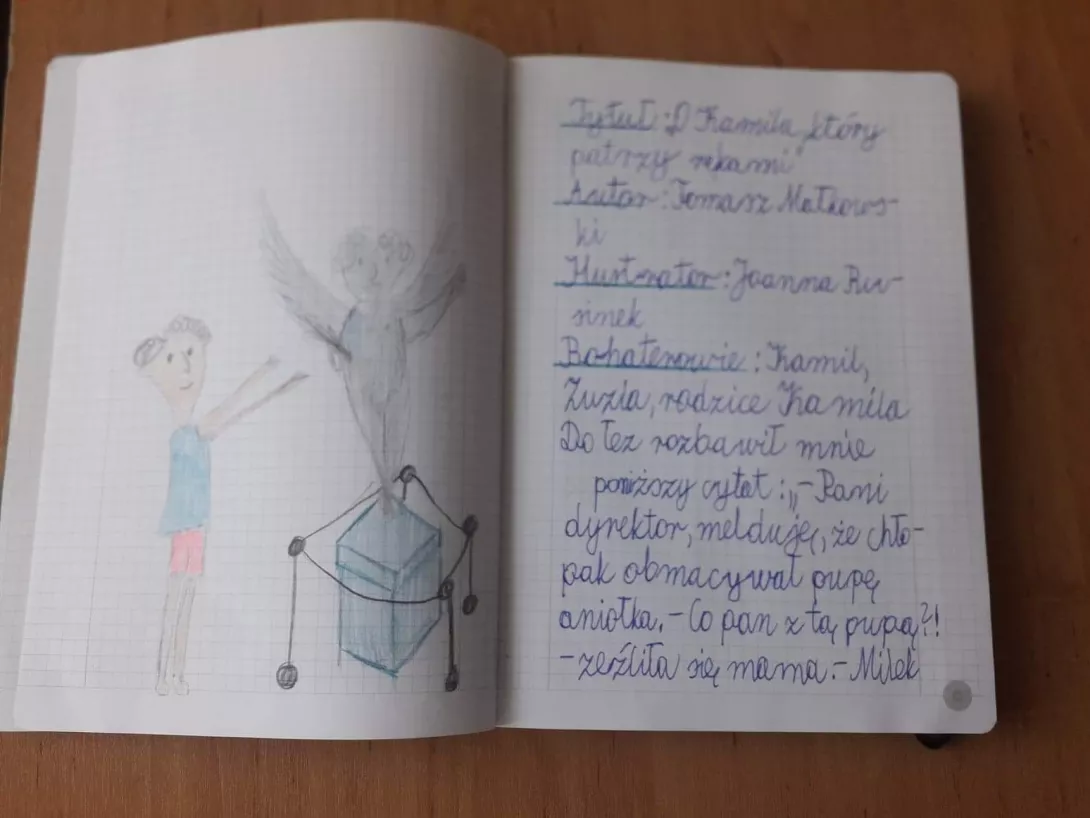 Tytuł: O Kamilu „który
patrzy rękami"
Autor: Tomasz Małkows-
ki
Ilustrator: Joanna Ru-
sinek
Bohaterowie: Kamil,
Zuzia, rodzice Kamila
Do łez rozbawił mnie
poniższy cytat: „-Pani
dyrektor, melduję, że chło-
pak obmacywał pupę
aniołka. - Co pan z tą pupą?!
- zeźliła się mama. - Milek